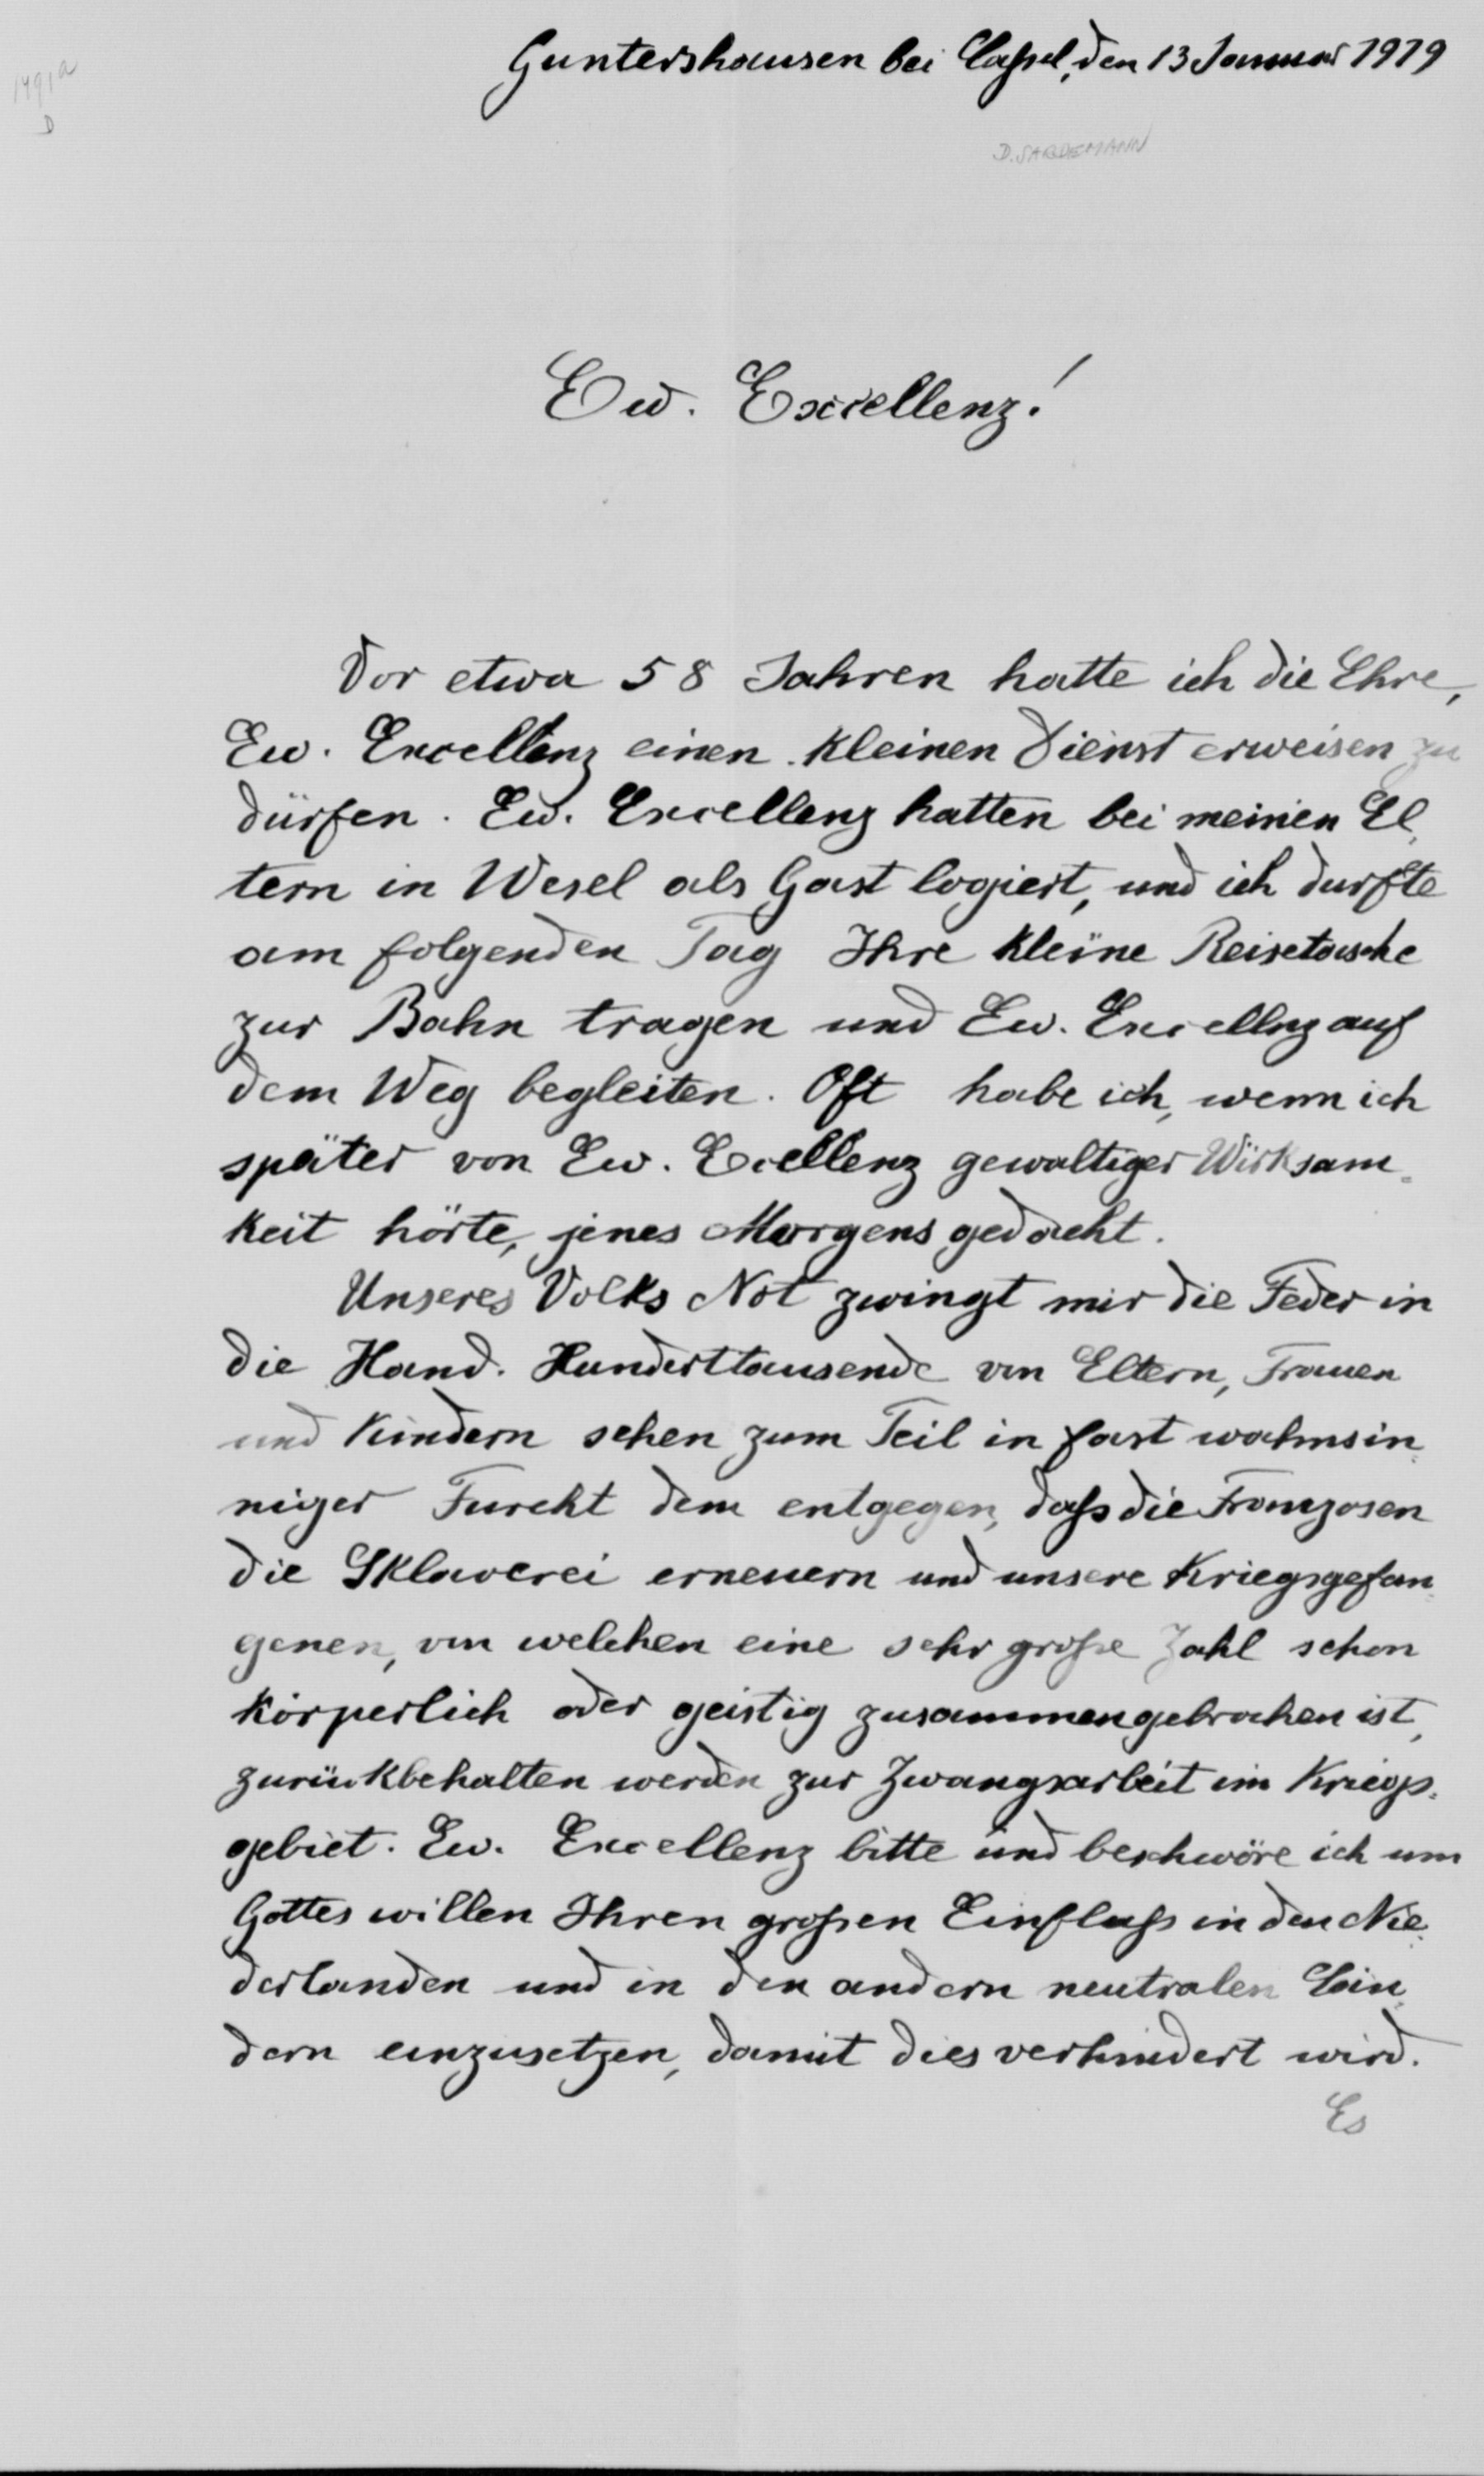 Guntershausen bei Cassel, den 13 Januar 1919
1491a
D
D. SARDEMANN
Ew. Excellenz!
Vor etwa 58 Jahren hatte ich die Ehre,
Ew. Excellenz einen kleinen Dienst erweisen zu
dürfen. Ew. Excellenz hatten bei meinen El-
tern in Wesel als Gast logiert, und ich durfte
am folgenden Tag Ihre kleine Reisetasche
zur Bahn tragen und Ew. Excellnz auf
dem Weg begleiten. Oft habe ich, wenn ich
später von Ew. Excellenz gewaltiger Wirksam-
keit hörte, jenes Morgens gedacht.
Unseres Volks Not zwingt mir die Feder in
die Hand. Hunderttausende von Eltern, Frauen
und Kindern sehen zum Teil in fast wahnsin-
niger Furcht dem entgegen, daß die Franzosen
die Sklaverei erneuern und unsere Kriegsgefan-
genen, von welchen eine sehr große Zahl schon
körperlich oder geistig zusammengebrochen ist,
zurückbehalten werden zur Zwangsarbeit im Kriegs-
gebiet. Ew. Excellenz bitte und beschwöre ich um
Gottes willen Ihren großen Einfluß in den Nie-
derlanden und in den andern neutralen Län-
dern einzusetzen, damit dies verhindert wird.
Es